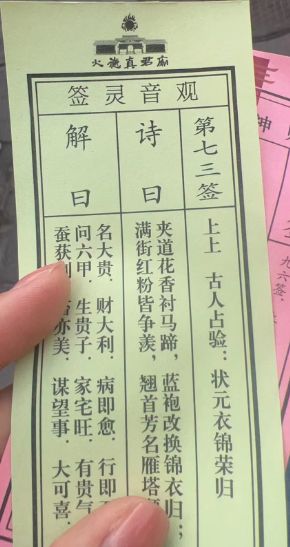 火龍真君廟
观音灵签
第七三签
上上 古人占验：状元衣锦荣归
诗曰
夹道花香衬马蹄，蓝袍改换锦衣归；
满街红粉皆争羡，翘首芳名雁塔
解曰
名大贵．财大利．病即愈．行即
问六甲．生贵子．家宅旺．有贵气
蚕获 亦美．谋望事．大可喜．
神
九六签